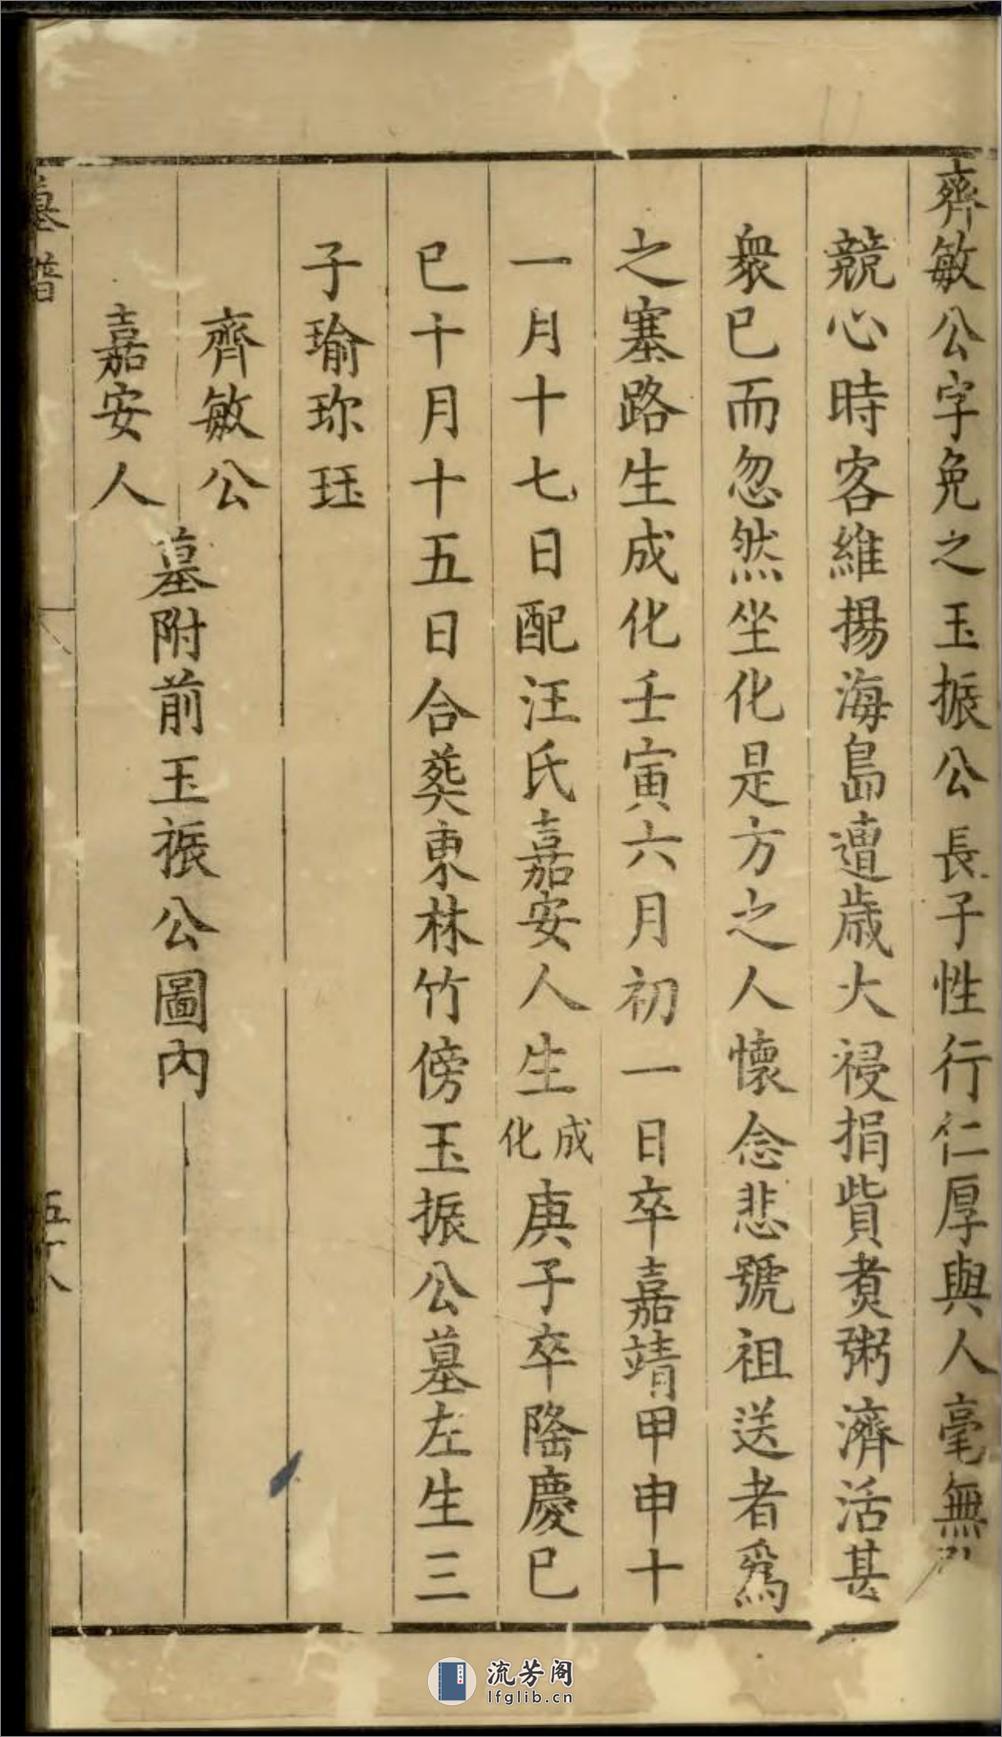 齊敏公字免之玉振公長子性行仁厚與人毫無
競心時客維揚海島遭歲大祲捐貲煑粥濟活甚
衆已而忽然坐化是方之人懷念悲號祖送者爲
之塞路生成化壬寅六月初一日卒嘉靖甲申十
一月十七日配汪氏嘉安人生成化庚子卒隆慶已
巳十月十五日合葬東林竹傍玉振公墓左生三
子瑜珎珏
齊敏公
嘉安人
墓附前玉振公圖內
墓譜
五十八
流芳阁
lfglib.cn